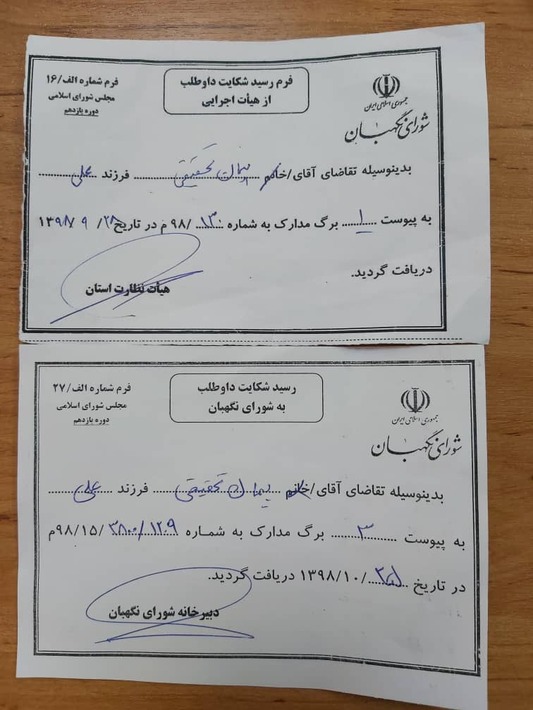 جمهوری اسلامی ایران
شورای نگهبان
فرم رسید شکایت داوطلب
از هیأت اجرایی
فرم شماره الف/۱۶
مجلس شورای اسلامی
دوره یازدهم
بدینوسیله تقاضای آقای/خانم پیمان تحقیقی فرزند علی
به پیوست ۱ برگ مدارک به شماره ۱۳۰/۹۸ م در تاریخ ۲۸/۹/۱۳۹۸
دریافت گردید.
هیأت نظارت استان
جمهوری اسلامی ایران
شورای نگهبان
رسید شکایت داوطلب
به شورای نگهبان
فرم شماره الف/۲۷
مجلس شورای اسلامی
دوره یازدهم
بدینوسیله تقاضای آقای/خانم پیمان تحقیقی فرزند علی
به پیوست ۳ برگ مدارک به شماره ۹۸/۱۵/م
در تاریخ /۱۳۹۸/۱۰ دریافت گردید.
دبیرخانه شورای نگهبان